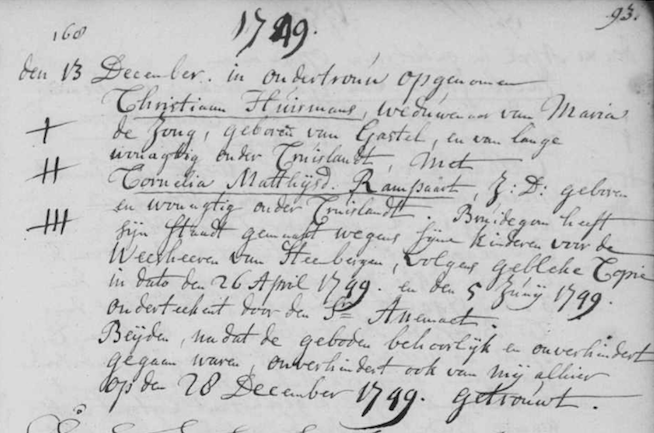 168 1749. 93.
den 13 December. in ondertrouw opgenomen
Christiaan Huismans, weduwenaar van Maria
de Jong, geboren van Gastel, en van lange
woonagtig onder Cruislandt, Met
Cornelia Matthijsd. Rampaart, J: D: geboren
en woonagtig onder Cruislandt. Bruidegom heeft
sijn staadt gemaakt wegens sijne kinderen voor de
Weesheeren van Steebergen, volgens gebleke Copie
in dato den 26 April 1749. en den 5 Junij 1749.
onderteekent door den Sr
Beijden, na dat de geboden behoorlijk en onverhindert
gegaan waren, onverhindert ook van mij alhier
op den 28 December 1749. getrouwt.